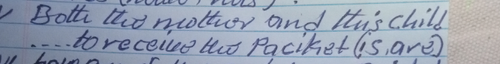 Both the mother and this child
....to receive the Paciket (is, are)